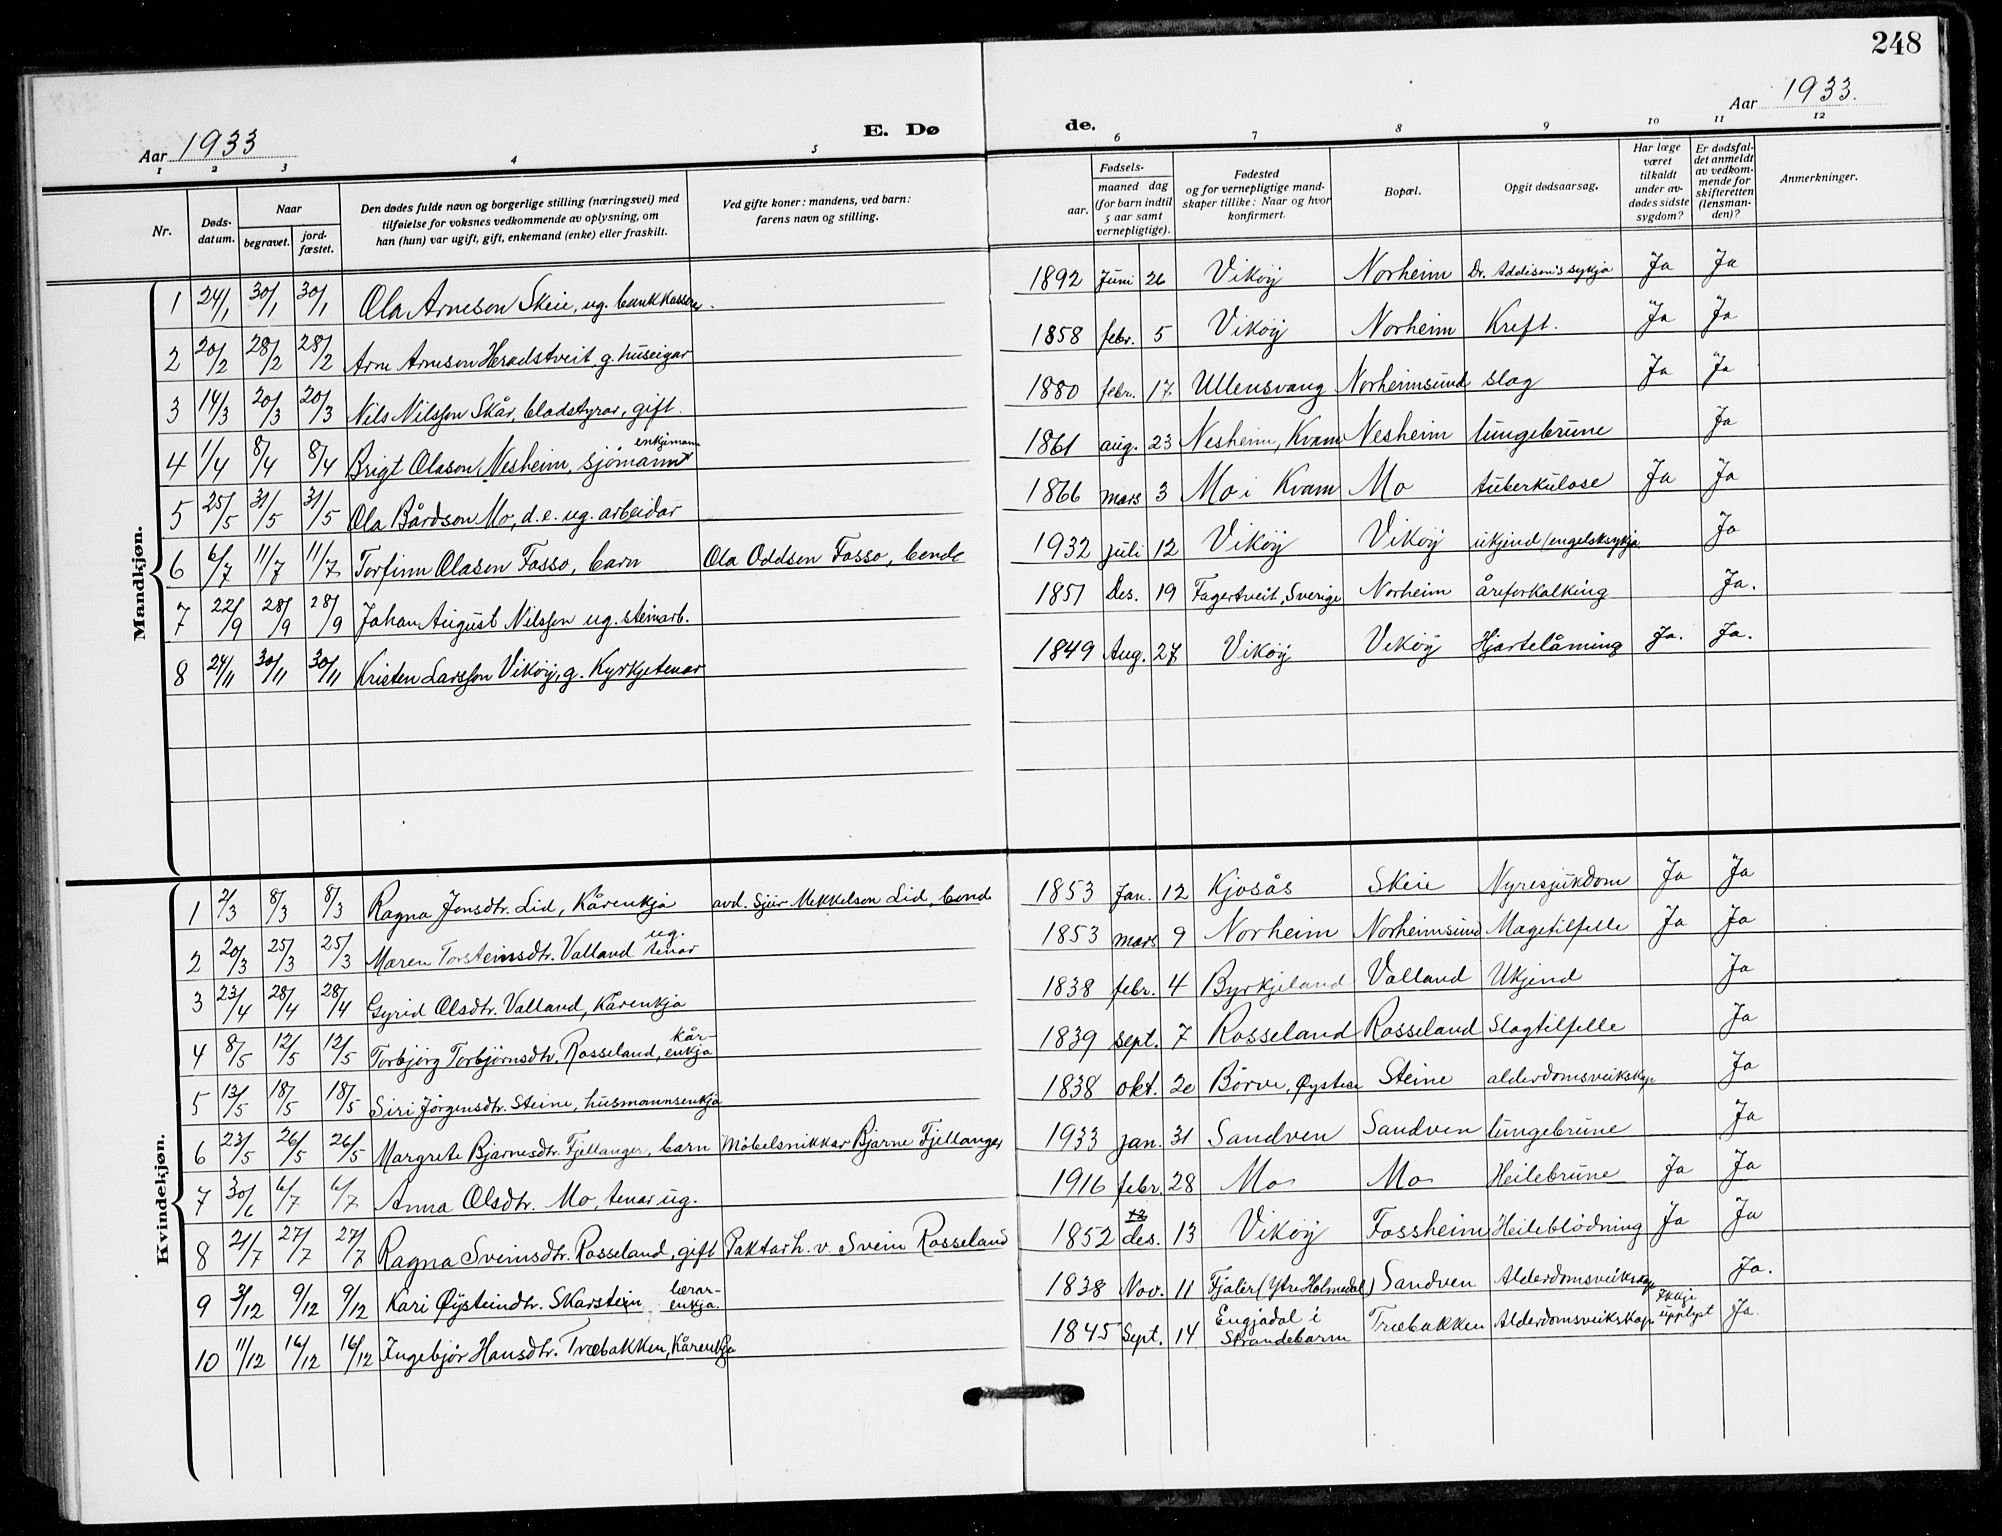 248
Aar 1933
E. Dø
de.
Aar 1933.
1 2 3 4 5 6 7 8 9 10 11 12
Nr. Døds-datum. Naar begravet. jord-fæstet. Den dødes fulde navn og borgerlige stilling (næringsvei) med tilføielse for voksnes vedkommende av oplysning, om han (hun) var ugift, gift, enkemand (enke) eller fraskilt. Ved gifte koner: mandens, ved barn: farens navn og stilling. Fødsels- aar. maaned dag (for barn indtil 5 aar samt vernepligtige). Fødested og for vernepligtige mand-skaper tillike: Naar og hvor konfirmert. Bopæl. Opgit dødsaarsag. Har læge været tilkaldt under av-dødes sidste sygdom? Er dødsfal-det anmeldt av vedkom-mende for skifteretten (lensman-den)? Anmerkninger.
Mandkjøn.
1 24/1 30/1 30/1 Ola Arneson Skeie, ug. bankkasserar. 1892 Juni 26 Vikøy Norheim Dr. Addison's sykja Ja Ja
2 20/2 28/2 28/2 Arne Arneson Heradstveit, g. huseigar 1858 febr. 5 Vikøy Norheim Kreft. Ja Ja
3 14/3 20/3 20/3 Nils Nilsson Skår, bladstyrar, gift. 1880 febr. 17 Ullensvang Norheimsund slag Ja Ja
4 1/4 8/4 8/4 Brigt Olason Nesheim, sjömann enkjemann 1861 aug. 23 Nesheim, Kvam Nesheim lungebrune Ja
5 25/5 31/5 31/5 Ola Bårdson Mo, d.e. ug. arbeidar 1866 mars 3 Mo i Kvam Mo tuberkulose Ja Ja
6 6/7 11/7 11/7 Torfinn Olason Fosso, barn Ola Oddsen Fosso, bonde 1932 juli 12 Vikøy Vikøy ukjend (engelsksykja Ja
7 22/9 28/9 28/9 Johan August Nilsson ug. steinarb. 1851 Des. 19 Fagertveit, Sverige Norheim åreforkalking Ja.
8 24/11 30/11 30/11 Kristen Larsson Vikøy, g. Kyrkjetenar 1849 Aug. 27 Vikøy Vikøy Hjartelåming Ja. Ja.
Kvindekjøn.
1 2/3 8/3 8/3 Ragna Jonsdtr. Lid, Kårenkja avd. Sjur Mekkelson Lid, bonde 1853 Jan. 12 Kjosås Skeie Nyresjukdom Ja Ja
2 20/3 25/3 25/3 Maren Torsteinsdtr. Valland ug. tenar 1853 mars 9 Norheim Norheimsund Magetilfelle Ja Ja
3 23/4 28/4 28/4 Gyrid Olsdtr. Valland, Kårenkja 1838 febr. 4 Byrkjeland Valland Ukjend Ja
4 8/5 12/5 12/5 Torbjörg Torbjörnsdtr. Rosseland, kår-enkja 1839 sept. 7 Rosseland Rosseland Slagtilfelle Ja
5 13/5 18/5 18/5 Siri Jörgensdtr. Steine, husmannsenkja 1838 okt. 20 Börve, Øystese Steine alderdomsveikskap Ja
6 23/5 26/5 26/5 Margrete Bjarnesdtr. Fjellanger, barn Möbelsnikkar Bjarne Fjellanger 1933 jan. 31 Sandven Sandven lungebrune Ja
7 30/6 6/7 6/7 Anna Olsdtr. Mo, tenar ug. 1916 febr. 28 Mo Mo Heilebrune Ja Ja
8 21/7 27/7 27/7 Ragna Sveinsdtr. Rosseland, gift Paktarh. v. Svein Rosseland 1852 des. 13 Vikøy Fossheim Heileblödning Ja Ja
9 3/12 9/12 9/12 Kari Øysteindtr. Skarstein lærar-enkja. 1838 Nov. 11 Fjaler (Ytre Holmedal) Sandven Alderdomsveikskap Ja.
10 11/12 16/12 16/12 Ingebjør Hansdtr. Træbakken, Kårenkja 1845 Sept. 14 Engjadal i Strandebarm Træbakken Alderdomsveikskap Ikkje upplyst Ja.